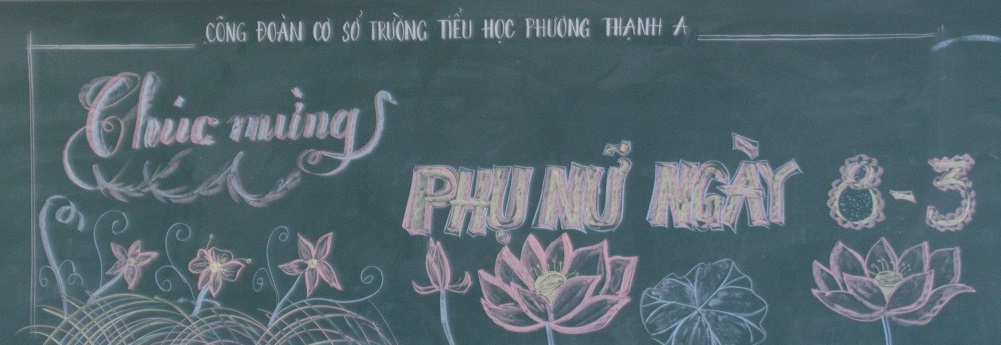 CÔNG ĐOÀN CƠ SỞ TRƯỜNG TIỂU HỌC PHƯƠNG THẠNH A
Chúc mừng
PHỤ NỮ NGÀY 8-3